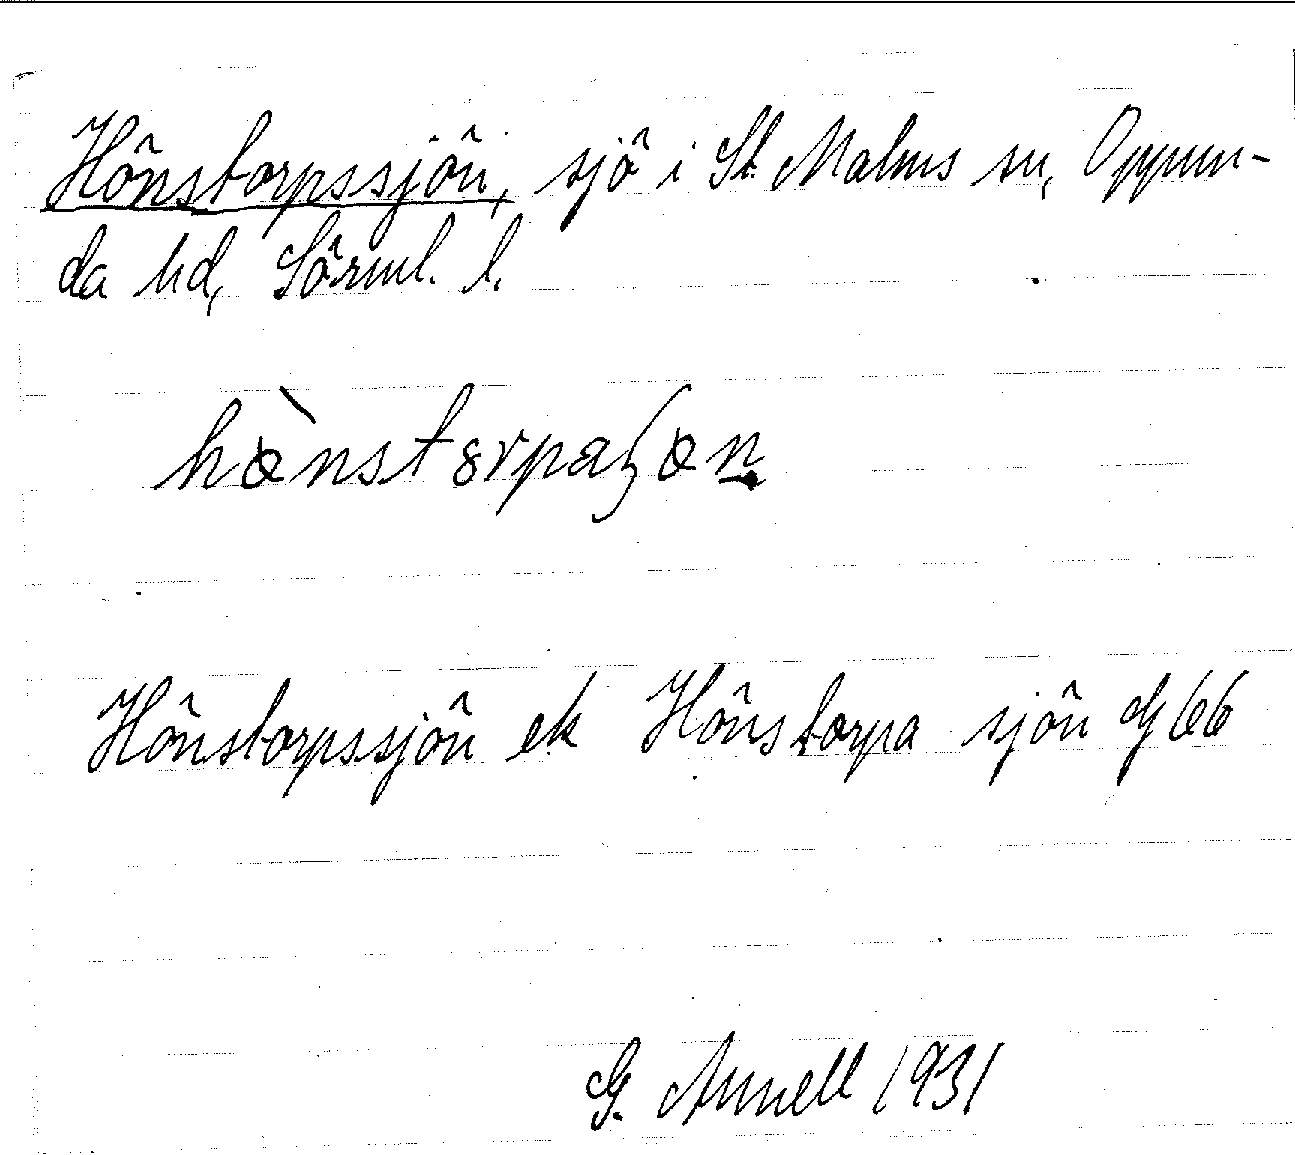 Hönstorpssjön, sjö i St. Malms sn, Oppun-
da hd, Sörml. l.
Hönstorpssjön ek Hönstorpa sjön Gf 66
G. Annell 1931